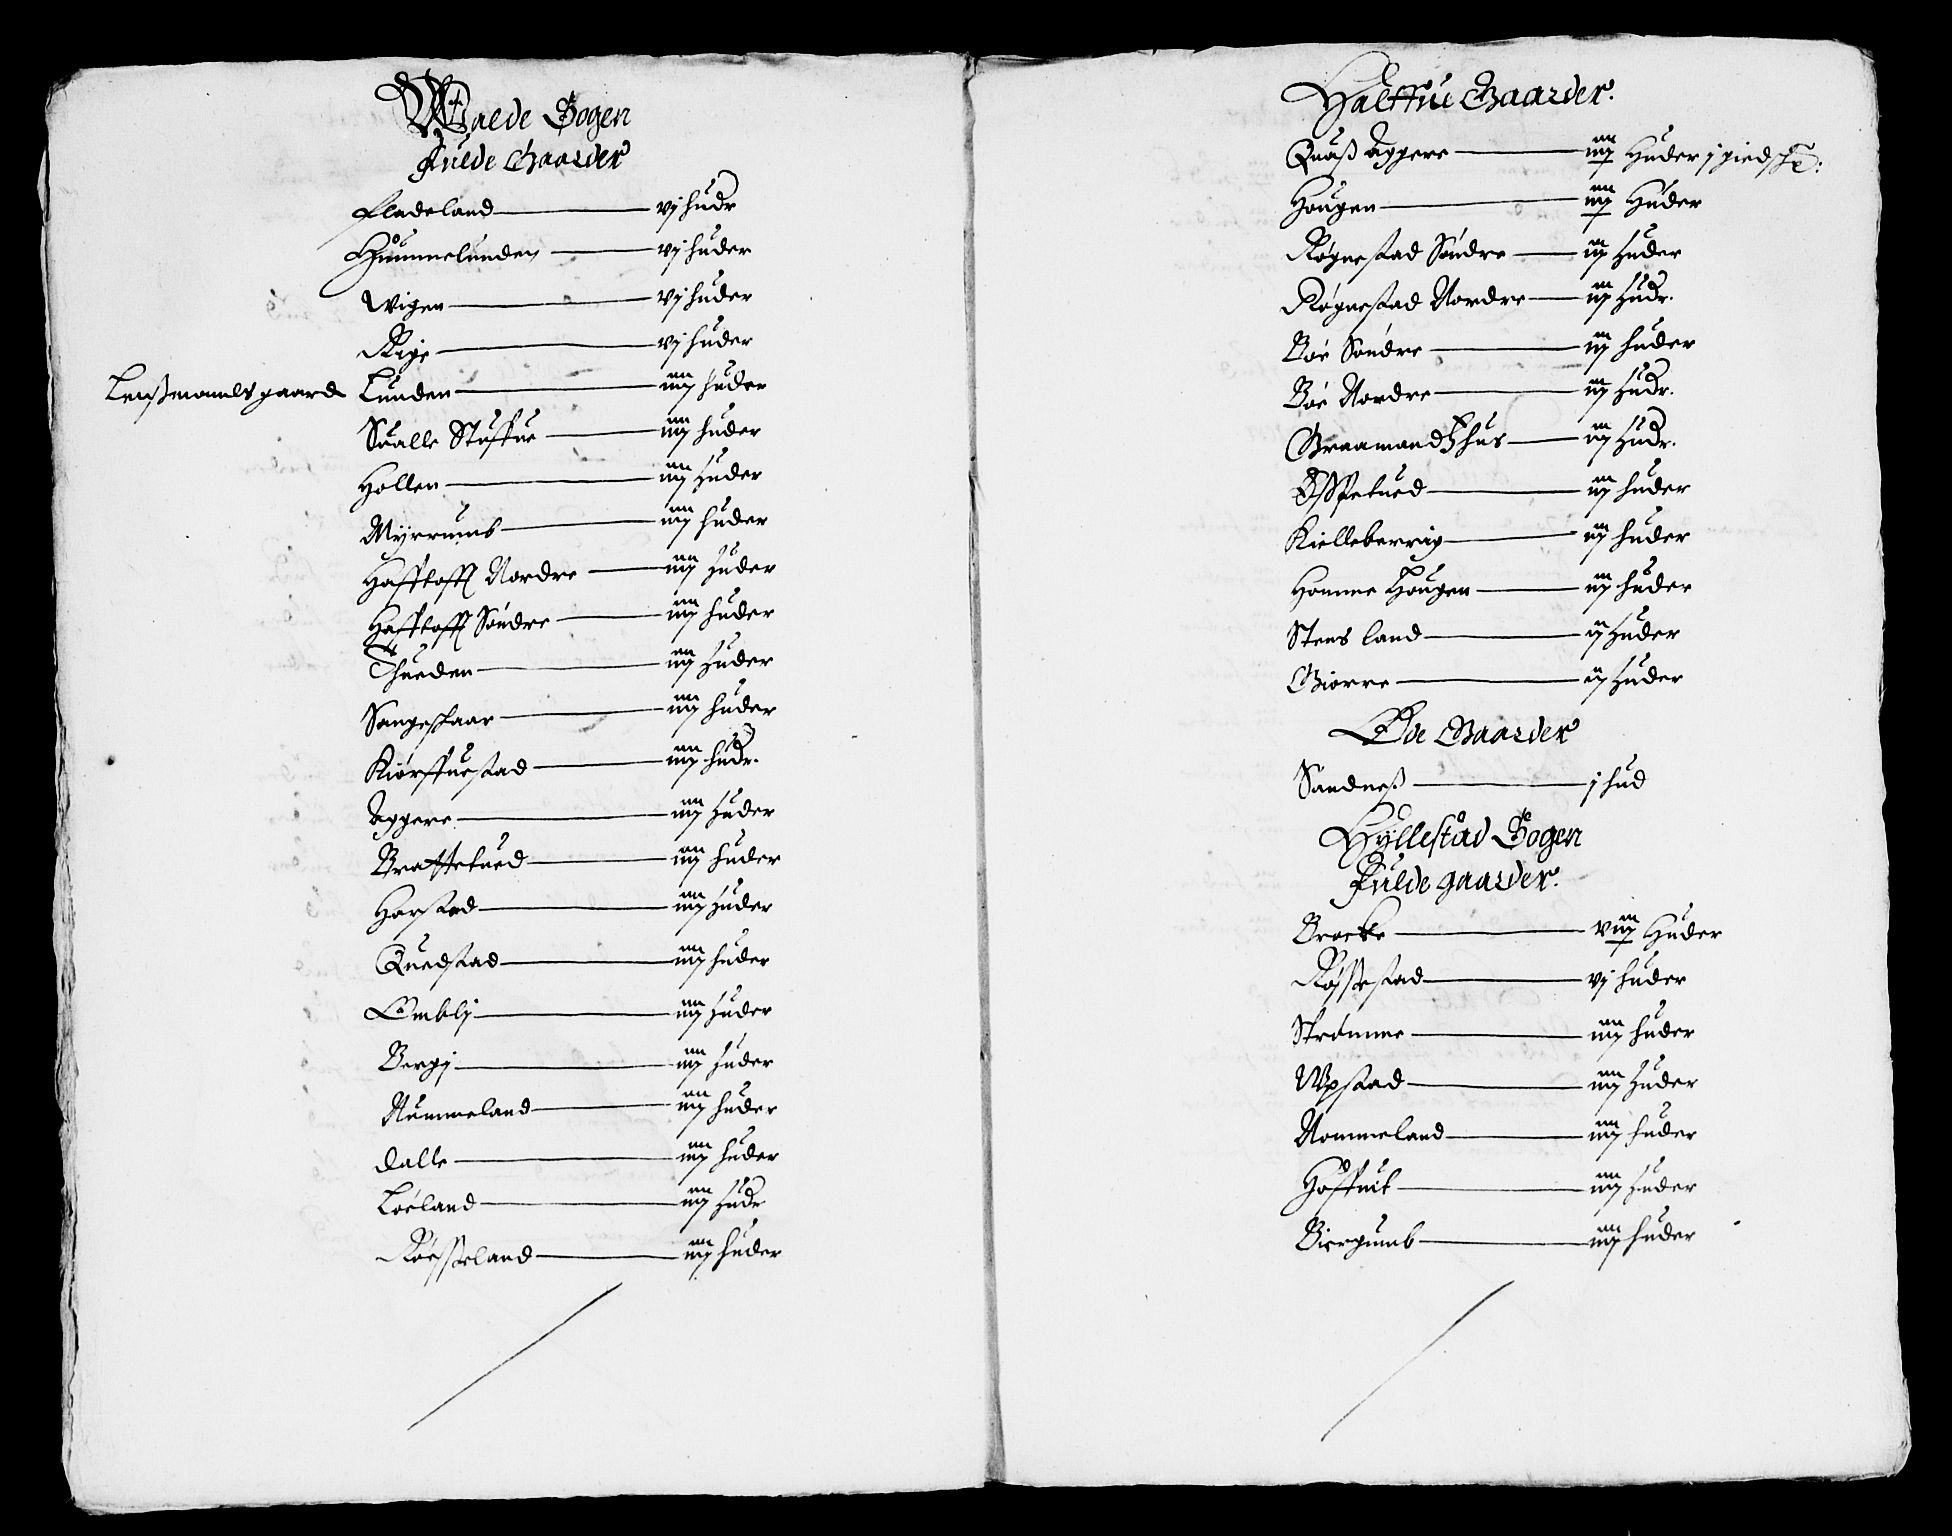 Walde Sogen
Fulde Gaarder
Fladeland — vj hudr
Hummelunden — vj huder
Wigen — vj huder
Rige — vj huder
Lenßmandts gaard Lunden — iiij huder
Sualle Stuffue — iiij huder
Hollen — iiij huder
Myrrumb — iiij huder
Haffloff Nordre — iiij huder
Haffloff Söndre — iiij huder
Thueden — iiij huder
Sangeskaar — iiij huder
Kiörffuestad — iiij hudr.
Aggere — iiij huder
Brattetued — iiij huder
Harstad — iiij huder
Quedstad — iiij huder
Embly — iiij huder
Bergj — iiij huder
Nummeland — iiij huder
Dalle — iiij huder
Löeland — iiij hudr
Röesseland — iiij huder
Halffue Gaarder.
Quaß Aggere — iiij Huder j gied
Hougen — iiij Huder
Røgnestad Söndre — iij huder
Røgnestad Nordre — iij hudr.
Böe Söndre — iij huder
Böe Nordre — iij hudr.
Graamandzhus — iij hudr.
Espetued — iij huder
Kielleberrig — iij huder
Homme Hougen — iij huder
Stens land — ij huder
Giörre — ij huder
Øde Gaarder
Sandneß — j hud
Hyllestad Sogen
Fulde gaarder.
Brocke — viij Huder
Røssestad — vj huder
Strömme — iiij huder
Wpstad — iiij huder
Nommeland — iiij huder
Hoffuit — iiij huder
Biergumb — iiij huder